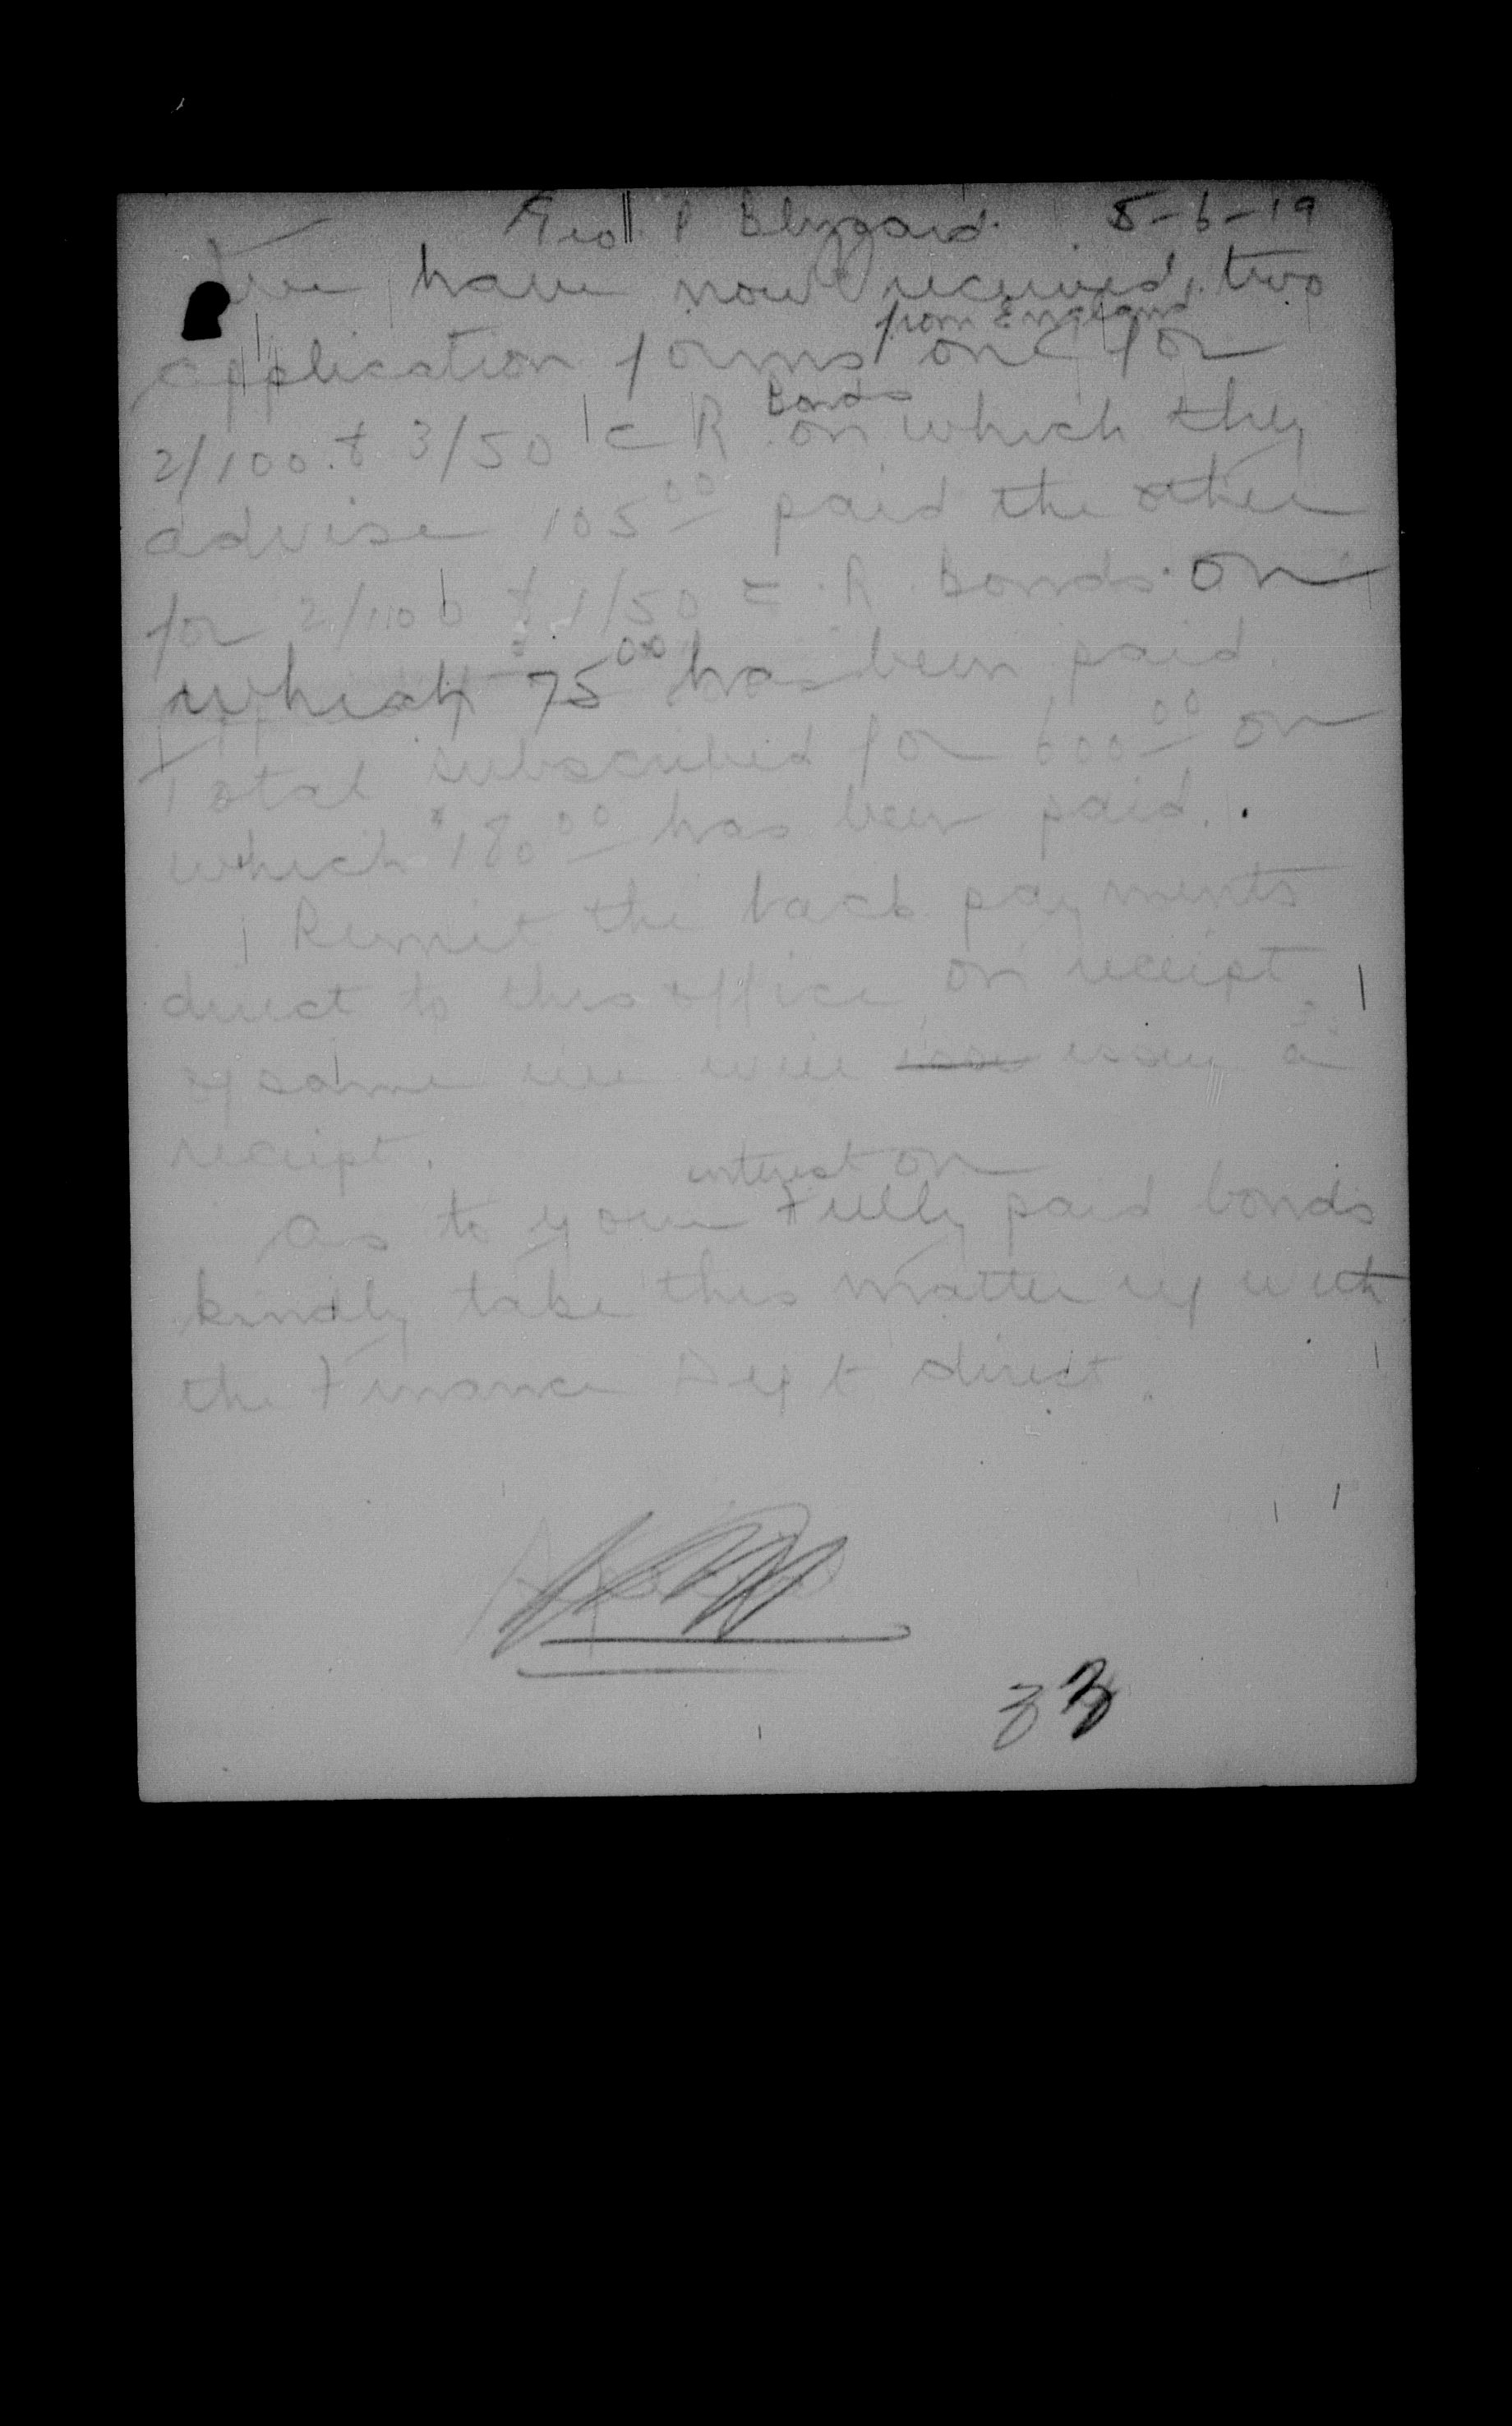 Geo. P Blizzard. 5-6-19
We have now received two
from England
application forms one for
Bonds
2/100. & 3/50 C R on which they
advise 105 00 paid the other
for 2/100 & 1/50 C.R. bonds. on
which $75 00 has been paid.
Total subscribed for 600 00 on
which $180 00 has been paid.
Remit the back payments
direct to this office on receipt
of same we will issue a
receipt.
interest on
As to your Fully paid bonds
kindly take this matter up with
the Finance Dept direct.
33